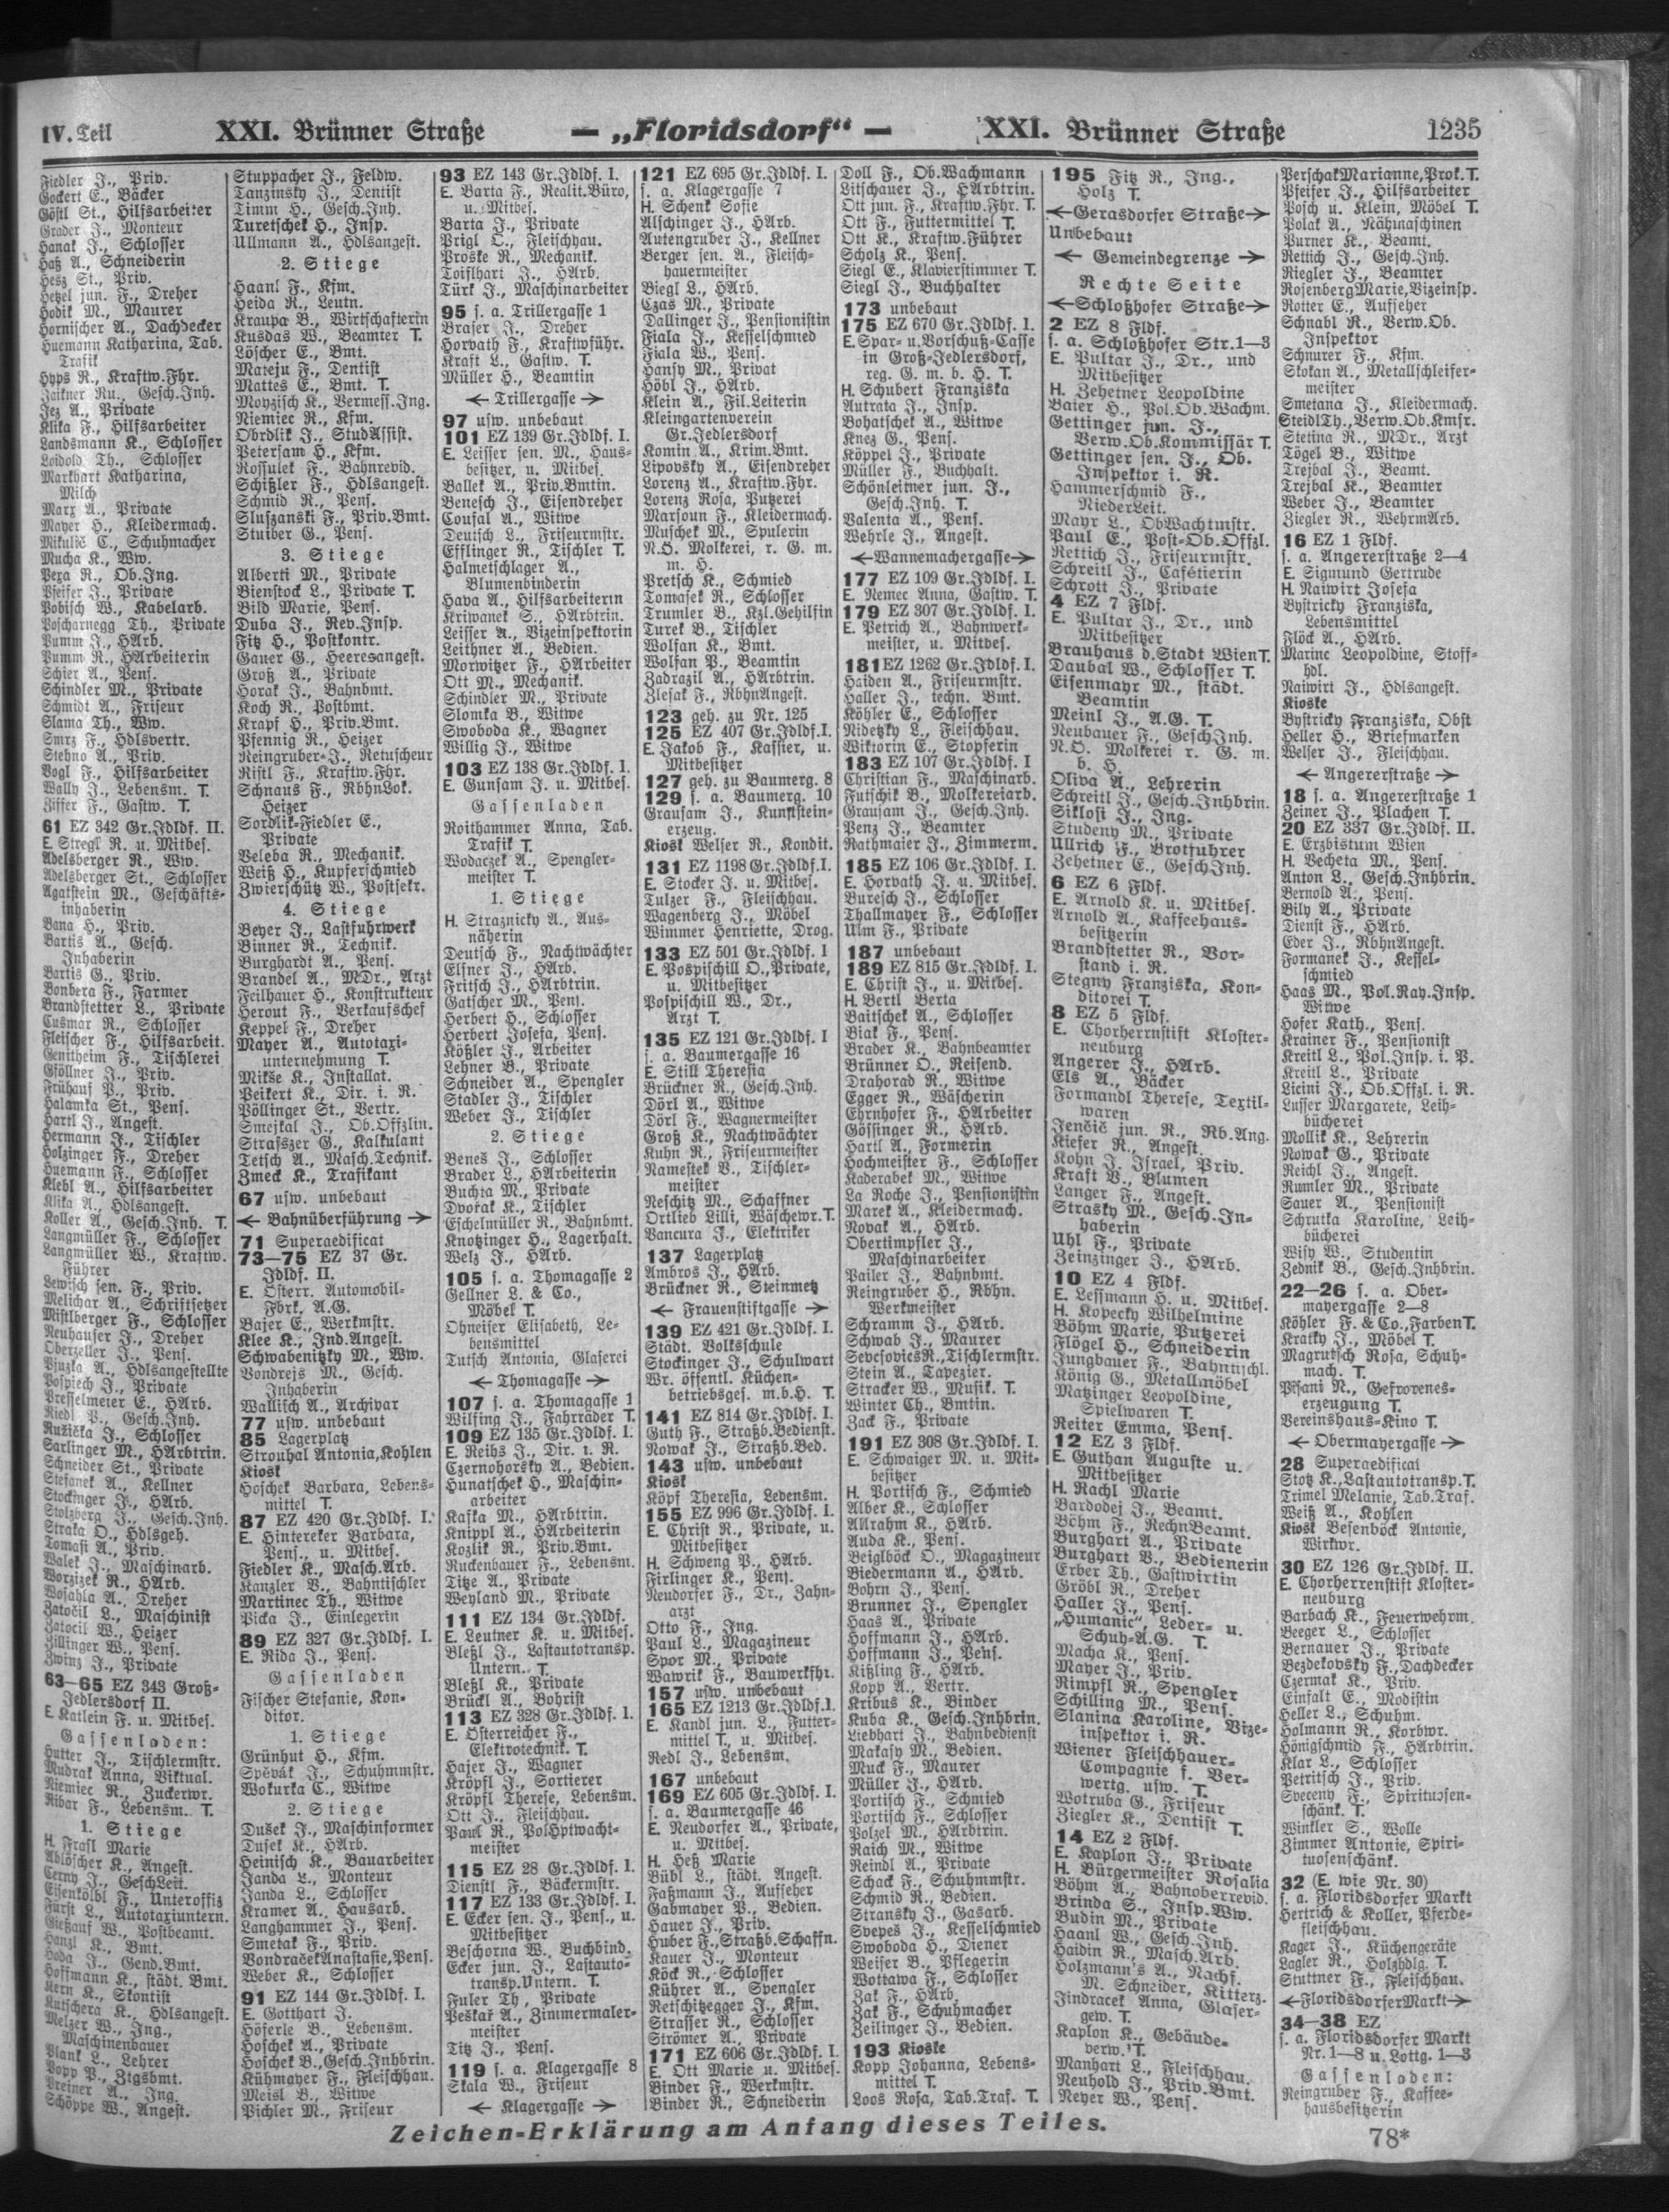 IV. Teil
XXI. Brünner Straße
— „Floridsdorf“ —
XXI. Brünner Straße
1235
Fiedler J., Priv.
Gockert E., Bäcker
Göstl St., Hilfsarbeiter
Groder J., Monteur
Hanak J., Schlosser
Haß A., Schneiderin
Hesz St., Priv.
Hetzel jun. F., Dreher
Hodik M., Maurer
Hornischer A., Dachdecker
Huemann Katharina, Tab.
Trafik
Hyps R., Kraftw.Fhr.
Jaikner Ru., Gesch.Inh.
Jez A., Private
Klika F., Hilfsarbeiter
Landsmann K., Schlosser
Loidold Th., Schlosser
Markhart Katharina,
Milch
Marx A., Private
Mayer H., Kleidermach.
Mikulič C., Schuhmacher
Mucha K., Ww.
Pexa R., Ob.Ing.
Pfeifer J., Private
Pobisch W., Kabelarb.
Poscharnegg Th., Private
Pumm J., HArb.
Pumm R., HArbeiterin
Schier A., Pens.
Schindler M., Private
Schmidt A., Friseur
Slama Th., Ww.
Smrz F., Hdlsvertr.
Stehno A., Priv.
Vogl F., Hilfsarbeiter
Wally J., Lebensm. T.
Ziffer F., Gastw. T.
61 EZ 342 Gr.Jdldf. II.
E. Stregl R. u. Mitbes.
Adelsberger R., Ww.
Adelsberger St., Schlosser
Agatstein M., Geschäfts-
inhaberin
Bana H., Priv.
Bartis A., Gesch.
Inhaberin
Bartis G., Priv.
Bonbera F., Farmer
Brandstetter L., Private
Cusmar R., Schlosser
Fleischer F., Hilfsarbeit.
Genitheim F., Tischlerei
Göllner J., Priv.
Frühauf P., Priv.
Halamka St., Pens.
Hartl J., Angest.
Hermann J., Tischler
Holzinger F., Dreher
Huemann F., Schlosser
Klebl A., Hilfsarbeiter
Klika A., Hdlsangest.
Koller A., Gesch.Inh. T.
Langmüller F., Schlosser
Langmüller W., Kraftw.
Führer
Lewisch sen. F., Priv.
Melichar A., Schriftsetzer
Mistlberger F., Schlosser
Neuhauser J., Dreher
Oberzeller J., Pens.
Pjuzka A., Hdlsangestellte
Pospiech J., Private
Presselmeier E., HArb.
Riedl P., Gesch.Inh.
Ružička J., Schlosser
Sarlinger M., HArbtrin.
Schneider St., Private
Stefanek A., Kellner
Stockinger J., HArb.
Stolzberg J., Gesch.Inh.
Straka O., Hdlsgeh.
Tomasi A., Priv.
Walek J., Maschinarb.
Worzizek R., HArb.
Wosahla A., Dreher
Zatočil L., Maschinist
Zatocil W., Heizer
Zillinger W., Pens.
Zwinz J., Private
63—65 EZ 343 Groß-
Jedlersdorf II.
E. Katlein F. u. Mitbes.
Gassenladen:
Hutter J., Tischlermstr.
Mudrak Anna, Viktual.
Niemiec R., Zuckerwr.
Ribar F., Lebensm. T.
1. Stiege
H. Frasl Marie
Ablöscher K., Angest.
Cerny J., GeschLeit.
Eisenkölbl F., Unteroffiz
Fürst L., Autotaxiuntern.
Gießauf W., Postbeamt.
Hanzl K., Bmt.
Hoda J., Gend.Bmt.
Hoffmann K., städt. Bmt.
Kern K., Skontist
Kutschera K., Hdlsangest.
Melzer W., Ing.,
Maschinenbauer
Plank L., Lehrer
Popp P., Ztgsbmt.
Preiner A., Ing.
Schöppe W., Angest.
Stuppacher J., Feldw.
Tanzinsky J., Dentist
Timm H., Gesch.Inh.
Turetschek H., Insp.
Ullmann A., Hdlsangest.
2. Stiege
Haanl F., Kfm.
Heida R., Leutn.
Kraupa B., Wirtschafterin
Kusdas W., Beamter T.
Löscher E., Bmt.
Mateju F., Dentist
Mattes E., Bmt. T.
Moyzisch K., Vermess.Ing.
Niemiec R., Kfm.
Obrdlik J., StudAssist.
Petersam H., Kfm.
Rossulek F., Bahnrevid.
Schißler F., Hdlsangest.
Schmid R., Pens.
Sluszanski F., Priv.Bmt.
Stuiber G., Pens.
3. Stiege
Alberti M., Private
Bienstock L., Private T.
Bild Marie, Pens.
Duba J., Rev.Insp.
Fitz H., Postkontr.
Gauer G., Heeresangest.
Groß A., Private
Horak J., Bahnbmt.
Koch R., Postbmt.
Krapf H., Priv.Bmt.
Pfennig R., Heizer
Reingruber J., Retuscheur
Ristl F., Kraftw.Fhr.
Schnaus F., RbhnLok.
Heizer
Sordlik-Fiedler E.,
Private
Veleba R., Mechanik.
Weiß H., Kupferschmied
Zwierschütz W., Postsekr.
4. Stiege
Beyer J., Lastfuhrwerk
Binner R., Technik.
Burghardt A., Pens.
Brandel A., MDr., Arzt
Feilhauer H., Konstrukteur
Herout F., Verkaufschef
Keppel F., Dreher
Mayer A., Autotaxi-
unternehmung T.
Mikše K., Installat.
Peikert K., Dir. i. R.
Pöllinger St., Vertr.
Smejkal J., Ob.Offzlin.
Strafszer G., Kalkulant
Tetsch A., Masch.Technik.
Zmeck K., Trafikant
67 usw. unbebaut
← Bahnüberführung →
71 Superaedificat
73—75 EZ 37 Gr.
Jdldf. II.
E. Österr. Automobil-
Fbrk. A.G.
Bajer E., Werkmstr.
Klee K., Ind.Angest.
Schwabenitzky M., Ww.
Vondrejs M., Gesch.
Inhaberin
Wallisch A., Archivar
77 usw. unbebaut
85 Lagerplatz
Strouhal Antonia, Kohlen
Kiosk
Hoschek Barbara, Lebens-
mittel T.
87 EZ 420 Gr.Jdldf. I.
E. Hintereker Barbara,
Pens., u. Mitbes.
Fiedler K., Masch.Arb.
Kanzler V., Bahntischler
Martinec Th., Witwe
Picka J., Einlegerin
89 EZ 327 Gr.Jdldf. I.
E. Rida J., Pens.
Gassenladen
Fischer Stefanie, Kon-
ditor.
1. Stiege
Grünhut H., Kfm.
Spěvák J., Schuhmmstr.
Wokurka C., Witwe
2. Stiege
Dušek J., Maschinformer
Dusek K., HArb.
Heinisch K., Bauarbeiter
Janda L., Monteur
Janda L., Schlosser
Kramer A., Hausarb.
Langhammer J., Pens.
Smetak F., Priv.
Vondraček Anastasie, Pens.
Weber K., Schlosser
91 EZ 144 Gr.Jdldf. I.
E. Gotthart J.
Höferle B., Lebensm.
Hoschek A., Private
Hoschek B., Gesch.Inhbrin.
Kühmayer F., Fleischhau.
Meisl B., Witwe
Pichler M., Friseur
93 EZ 143 Gr.Jdldf. I.
E. Barta F., Realit.Büro,
u. Mitbes.
Barta J., Private
Prigl O., Fleischhau.
Proske R., Mechanik.
Toiflhart J., HArb.
Türk J., Maschinarbeiter
95 s. a. Trillergasse 1
Braser J., Dreher
Horvath F., Kraftwführ.
Kraft L., Gastw. T.
Müller H., Beamtin
← Trillergasse →
97 usw. unbebaut
101 EZ 139 Gr.Jdldf. I.
E. Leisser sen. M., Haus-
besitzer, u. Mitbes.
Ballek A., Priv.Bmtin.
Benesch J., Eisendreher
Cousal A., Witwe
Deutsch L., Friseurmstr.
Efflinger R., Tischler T.
Halmetschlager A.,
Blumenbinderin
Hava A., Hilfsarbeiterin
Kriwanek S., HArbtrin.
Leisser A., Vizeinspektorin
Leithner A., Bedien.
Morwitzer F., HArbeiter
Ott M., Mechanik.
Schindler M., Private
Slomka B., Witwe
Swoboda K., Wagner
Willig J., Witwe
103 EZ 138 Gr.Jdldf. I.
E. Gunsam J. u. Mitbes.
Gassenladen
Roithammer Anna, Tab.
Trafik T.
Wodaczek A., Spengler-
meister T.
1. Stiege
H. Straznicky A., Aus-
näherin
Deutsch F., Nachtwächter
Elsner J., HArb.
Fritsch J., HArbtrin.
Gatscher M., Pens.
Herbert H., Schlosser
Herbert Josefa, Pens.
Kößler J., Arbeiter
Lehner B., Private
Schneider A., Spengler
Stadler J., Tischler
Weber J., Tischler
2. Stiege
Beneš J., Schlosser
Brader L., HArbeiterin
Buchta M., Private
Dvořak K., Tischler
Eschelmüller R., Bahnbmt.
Knotzinger H., Lagerhalt.
Welz J., HArb.
105 s. a. Thomagasse 2
Gellner L. & Co.,
Möbel T.
Ohneiser Elisabeth, Le-
bensmittel
Tutsch Antonia, Glaserei
← Thomagasse →
107 s. a. Thomagasse 1
Wilfing J., Fahrräder T.
109 EZ 135 Gr.Jdldf. I.
E. Reihs J., Dir. i. R.
Czernohorsky A., Bedien.
Hunatschek H., Maschin-
arbeiter
Kafka M., HArbtrin.
Knippl A., HArbeiterin
Kozlik R., Priv.Bmt.
Ruckenbauer F., Lebensm.
Titze A., Private
Weyland M., Private
111 EZ 134 Gr.Jdldf.
E. Leutner K. u. Mitbes.
Bleßl J., Lastautotransp.
Untern. T.
Bleßl K., Private
Brückl A., Bohrist
113 EZ 328 Gr.Jdldf. I.
E. Österreicher F.,
Elektrotechnik. T.
Hajer J., Wagner
Kröpfl J., Sortierer
Kröpfl Therese, Lebensm.
Ott J., Fleischhau.
Paul R., PolHptwacht-
meister
115 EZ 28 Gr.Jdldf. I.
Dienstl F., Bäckermstr.
117 EZ 133 Gr.Jdldf. I.
E. Ecker sen. J., Pens., u.
Mitbesitzer
Beschorna W., Buchbind.
Ecker jun. J., Lastauto-
transp.Untern. T.
Fuler Th, Private
Peskař A., Zimmermaler-
meister
Titz J., Pens.
119 s. a. Klagergasse 8
Skala W., Friseur
← Klagergasse →
121 EZ 695 Gr.Jdldf. I.
s. a. Klagergasse 7
H. Schenk Sofie
Alschinger J., HArb.
Autengruber J., Kellner
Berger sen. A., Fleisch-
hauermeister
Biegl L., HArb.
Czas M., Private
Dallinger J., Pensionistin
Fiala J., Kesselschmied
Fiala W., Pens.
Hansy M., Privat
Höbl J., HArb.
Klein A., Fil.Leiterin
Kleingartenverein
Gr.Jedlersdorf
Komin A., Krim.Bmt.
Lipovsky A., Eisendreher
Lorenz A., Kraftw.Fhr.
Lorenz Rosa, Putzerei
Marsoun F., Kleidermach.
Muschek M., Spulerin
N.Ö. Molkerei, r. G. m.
m. H.
Pretsch K., Schmied
Tomasek R., Schlosser
Trumler B., Kzl.Gehilfin
Turek B., Tischler
Wolfan K., Bmt.
Wolfan P., Beamtin
Zadrazil A., HArbtrin.
Zlesak F., RbhnAngest.
123 geh. zu Nr. 125
125 EZ 407 Gr.Jdldf.I.
E. Jakob F., Kassier, u.
Mitbesitzer
127 geh. zu Baumerg. 8
129 s. a. Baumerg. 10
Grausam J., Kunststein-
erzeug.
Kiosk Welser R., Kondit.
131 EZ 1198 Gr.Jdldf.I.
E. Stocker J. u. Mitbes.
Tulzer F., Fleischhau.
Wagenberg J., Möbel
Wimmer Henriette, Drog.
133 EZ 501 Gr.Jdldf. I
E. Pospischill O., Private,
u. Mitbesitzer
Pospischill W., Dr.,
Arzt T.
135 EZ 121 Gr.Jdldf. I
s. a. Baumergasse 16
E. Still Theresia
Brückner R., Gesch.Inh.
Dörl A., Witwe
Dörl F., Wagnermeister
Groß K., Nachtwächter
Kuhn R., Friseurmeister
Namestek V., Tischler-
meister
Neschitz M., Schaffner
Ortlieb Lilli, Wäschewr.T.
Vancura J., Elektriker
137 Lagerplatz
Ambros J., HArb.
Brückner R., Steinmetz
← Frauenstiftgasse →
139 EZ 421 Gr.Jdldf. I.
Städt. Volksschule
Stockinger J., Schulwart
Wr. öffentl. Küchen-
betriebsges. m.b.H. T.
141 EZ 814 Gr.Jdldf. I.
Guth F., Straßb.Bedienst.
Nowak J., Straßb.Bed.
143 usw. unbebaut
Kiosk
Köpf Theresia, Lebensm.
155 EZ 996 Gr.Jdldf. I.
E. Christ R., Private, u.
Mitbesitzer
H. Schweng P., HArb.
Firlinger K., Pens.
Neudorfer F., Dr., Zahn-
arzt
Otto F., Ing.
Paul L., Magazineur
Spor M., Private
Wawrik F., Bauwerkfhr.
157 usw. unbebaut
165 EZ 1213 Gr.Jdldf.I.
E. Kandl jun. L., Futter-
mittel T., u. Mitbes.
Redl J., Lebensm.
167 unbebaut
169 EZ 605 Gr.Jdldf. I.
s. a. Baumergasse 46
E. Neudorfer A., Private,
u. Mitbes.
H. Heß Marie
Bübl L., städt. Angest.
Faßmann J., Aufseher
Gabmayer P., Bedien.
Hauer J., Priv.
Huber F., Straßb.Schaffn.
Kauer J., Monteur
Köck R., Schlosser
Kührer A., Spengler
Retschitzegger J., Kfm.
Strasser R., Schlosser
Strömer A., Private
171 EZ 606 Gr.Jdldf. I.
E. Ott Marie u. Mitbes.
Binder F., Werkmstr.
Binder R., Schneiderin
Doll F., Ob.Wachmann
Litschauer J., HArbtrin.
Ott jun. F., Kraftw.Fhr. T.
Ott F., Futtermittel T.
Ott K., Kraftw.Führer
Scholz K., Pens.
Siegl E., Klavierstimmer T.
Siegl J., Buchhalter
173 unbebaut
175 EZ 670 Gr.Jdldf. I.
E. Spar- u.Vorschuß-Casse
in Groß-Jedlersdorf,
reg. G. m. b. H. T.
H. Schubert Franziska
Autrata J., Insp.
Bohatschek A., Witwe
Knez G., Pens.
Köppel J., Private
Müller F., Buchhalt.
Schönleitner jun. J.,
Gesch.Inh. T.
Valenta A., Pens.
Wehrle J., Angest.
←Wannemachergasse→
177 EZ 109 Gr.Jdldf. I.
E. Nemec Anna, Gastw. T.
179 EZ 307 Gr.Jdldf. I.
E. Petrich A., Bahnwerk-
meister, u. Mitbes.
181 EZ 1262 Gr.Jdldf. I.
Haiden A., Friseurmstr.
Haller J., techn. Bmt.
Köhler E., Schlosser
Nidetzky L., Fleischhau.
Wiktorin E., Stopferin
183 EZ 107 Gr.Jdldf. I
Christian F., Maschinarb.
Futschik B., Molkereiarb.
Grausam J., Gesch.Inh.
Penz J., Beamter
Rathmaier J., Zimmerm.
185 EZ 106 Gr.Jdldf. I.
E. Horvath J. u. Mitbes.
Buresch J., Schlosser
Thallmayer F., Schlosser
Ulm F., Private
187 unbebaut
189 EZ 815 Gr.Jdldf. I.
E. Christ J., u. Mitbes.
H. Bertl Berta
Baitschek A., Schlosser
Biak F., Pens.
Brader K., Bahnbeamter
Brünner O., Reisend.
Drahorad R., Witwe
Egger R., Wäscherin
Ehrnhofer F., HArbeiter
Gössinger R., HArb.
Hartl A., Formerin
Hochmeister F., Schlosser
Kaderabek M., Witwe
La Roche J., Pensionistin
Marek A., Kleidermach.
Novak A., HArb.
Obertimpfler J.,
Maschinarbeiter
Pailer J., Bahnbmt.
Reingruber H., Rbhn.
Werkmeister
Schramm J., HArb.
Schwab J., Maurer
SevcsovicsR.,Tischlermstr.
Stein A., Tapezier.
Stracker W., Musik. T.
Winter Ch., Bmtin.
Zack F., Private
191 EZ 308 Gr.Jdldf. I.
E. Schwaiger M. u. Mit-
besitzer
H. Portisch F., Schmied
Alber K., Schlosser
Allrahm K., HArb.
Auda K., Pens.
Beiglböck O., Magazineur
Biedermann A., HArb.
Bohrn J., Pens.
Brunner J., Spengler
Haas A., Private
Hoffmann J., HArb.
Hoffmann J., Pens.
Kißling F., HArb.
Kopp A., Vertr.
Kribus K., Binder
Kuba K., Gesch.Inhbrin.
Liebhart J., Bahnbedienst
Makasy M., Bedien.
Muck F., Maurer
Müller J., HArb.
Portisch F., Schmied
Portisch F., Schlosser
Polzel M., HArbtrin.
Raich M., Witwe
Reindl A., Private
Schack F., Schuhmmstr.
Schmid R., Bedien.
Stransky J., Gasarb.
Svepeš J., Kesselschmied
Swoboda H., Diener
Weiser B., Pflegerin
Wottawa F., Schlosser
Zak F., HArb.
Zak F., Schuhmacher
Zeilinger J., Bedien.
193 Kioske
Kopp Johanna, Lebens-
mittel T.
Loos Rosa, Tab.Traf. T.
195 Fitz R., Ing.,
Holz T.
←Gerasdorfer Straße→
Unbebaut
← Gemeindegrenze →
Rechte Seite
←Schloßhofer Straße→
2 EZ 8 Fldf.
s. a. Schloßhofer Str.1—3
E. Pultar J., Dr., und
Mitbesitzer
H. Zehetner Leopoldine
Baier H., Pol.Ob.Wachm.
Gettinger jun. J.,
Verw.Ob.Kommissär T.
Gettinger sen. J., Ob.
Inspektor i. R.
Hammerschmid F.,
NiederLeit.
Mayr L., ObWachtmstr.
Paul E., Post-Ob.Offzl.
Rettich J., Friseurmstr.
Schreitl J., Cafétierin
Schrott J., Private
4 EZ 7 Fldf.
E. Pultar J., Dr., und
Mitbesitzer
Brauhaus d.Stadt WienT.
Daubal W., Schlosser T.
Eisenmayr M., städt.
Beamtin
Meinl J., A.G. T.
Neubauer F., GeschInh.
N.Ö. Molkerei r. G. m.
b. H.
Oliva A., Lehrerin
Schreitl J., Gesch.Inhbrin.
Siklosi J., Ing.
Studeny M., Private
Ullrich F., Brotfuhrer
Zehetner E., GeschInh.
6 EZ 6 Fldf.
E. Arnold K. u. Mitbes.
Arnold A., Kaffeehaus-
besitzerin
Brandstetter R., Vor-
stand i. R.
Stegny Franziska, Kon-
ditorei T.
8 EZ 5 Fldf.
E. Chorherrnstift Kloster-
neuburg
Angerer J., HArb.
Els A., Bäcker
Formandl Therese, Textil-
waren
Jenčič jun. R., Rb.Ang.
Kiefer R., Angest.
Kohn J. Israel, Priv.
Kraft V., Blumen
Langer F., Angest.
Strasky M., Gesch.In-
haberin
Uhl F., Private
Zeinzinger J., HArb.
10 EZ 4 Fldf.
E. Lessmann H. u. Mitbes.
H. Kopecky Wilhelmine
Böhm Marie, Putzerei
Flögel H., Schneiderin
Jungbauer F., Bahntischl.
König G., Metallmöbel
Matzinger Leopoldine,
Spielwaren T.
Reiter Emma, Pens.
12 EZ 3 Fldf.
E. Guthan Auguste u.
Mitbesitzer
H. Rachl Marie
Bardodej J., Beamt.
Böhm F., RechnBeamt.
Burghart A., Private
Burghart B., Bedienerin
Erber Th., Gastwirtin
Gröbl R., Dreher
Haller J., Pens.
„Humanic“, Leder- u.
Schuh-A.G. T.
Macha K., Pens.
Mayer J., Priv.
Rimpfl R., Spengler
Schilling M., Pens.
Slanina Karoline, Vize-
inspektor i. R.
Wiener Fleischhauer-
Compagnie f. Ver-
wertg. usw. T.
Wotruba G., Friseur
Ziegler K., Dentist T.
14 EZ 2 Fldf.
E. Kaplon J., Private
H. Bürgermeister Rosalia
Böhm A., Bahnoberrevid.
Brinda S., Insp.Ww.
Budin M., Private
Haanl W., Gesch.Inh.
Haidin R., Masch.Arb.
Holzmann's A., Nachf.
M. Schneider, Kitterz.
Jindracek Anna, Glaser-
gew. T.
Kaplon K., Gebäude-
verw. T.
Manhart L., Fleischhau.
Neuhold J., Priv.Bmt.
Neyer W., Pens.
Perschak Marianne, Prok.T.
Pfeifer J., Hilfsarbeiter
Posch u. Klein, Möbel T.
Polak A., Nähmaschinen
Purner K., Beamt.
Rettich J., Gesch.Inh.
Riegler J., Beamter
RosenbergMarie,Vizeinsp.
Rotter E., Aufseher
Schnabl R., Verw.Ob.
Inspektor
Schnurer F., Kfm.
Stokan A., Metallschleifer-
meister
Smetana J., Kleidermach.
SteidlTh., Verw.Ob.Kmsr.
Stetina R., MDr., Arzt
Tögel B., Witwe
Trejbal J., Beamt.
Trejbal K., Beamter
Weber J., Beamter
Ziegler R., WehrmArb.
16 EZ 1 Fldf.
s. a. Angererstraße 2—4
E. Sigmund Gertrude
H. Naiwirt Josefa
Bystricky Franziska,
Lebensmittel
Flöck A., HArb.
Marine Leopoldine, Stoff-
hdl.
Naiwirt J., Hdlsangest.
Kioske
Bystricky Franziska, Obst
Heller H., Briefmarken
Welser J., Fleischhau.
← Angererstraße →
18 s. a. Angererstraße 1
Zeiner J., Plachen T.
20 EZ 337 Gr.Jdldf. II.
E. Erzbistum Wien
H. Becheta M., Pens.
Anton L., Gesch.Inhbrin.
Bernold A., Pens.
Bily A., Private
Dienst F., HArb.
Eder J., RbhnAngest.
Formanek J., Kessel-
schmied
Haas M., Pol.Ray.Insp.
Witwe
Hofer Kath., Pens.
Krainer F., Pensionist
Kreitl L., Pol.Insp. i. P.
Kreitl L., Private
Licini J., Ob.Offzl. i. R.
Lusser Margarete, Leih-
bücherei
Mollik K., Lehrerin
Nowak G., Private
Reichl J., Angest.
Rumler M., Private
Sauer A., Pensionist
Schrutka Karoline, Leih-
bücherei
Wisy W., Studentin
Zednik B., Gesch.Inhbrin.
22—26 s. a. Ober-
mayergasse 2—8
Köhler F. & Co., FarbenT.
Kratky J., Möbel T.
Magrutsch Rosa, Schuh-
mach. T.
Pisani N., Gefrorenes-
erzeugung T.
Vereinshaus-Kino T.
← Obermayergasse →
28 Superaedificat
Stotz K., Lastautotransp.T.
Trimel Melanie, Tab.Traf.
Weiß A., Kohlen
Kiosk Besenböck Antonie,
Wirkwr.
30 EZ 126 Gr.Jdldf. II.
E. Chorherrenstift Kloster-
neuburg
Barbach K., Feuerwehrm.
Beeger L., Schlosser
Bernauer J., Private
Bezdekovsky F., Dachdecker
Czermak K., Priv.
Einfalt E., Modistin
Heller L., Schuhm.
Holmann R., Korbwr.
Hönigschmid F., HArbtrin.
Klar L., Schlosser
Petritsch J., Priv.
Sveceny F., Spirituosen-
schänk. T.
Winkler S., Wolle
Zimmer Antonie, Spiri-
tuosenschänk.
32 (E. wie Nr. 30)
s. a. Floridsdorfer Markt
Hertrich & Koller, Pferde-
fleischhau.
Kager J., Küchengeräte
Lagler R., Holzhdlg. T.
Stuttner F., Fleischhau.
←FloridsdorferMarkt→
34—38 EZ
s. a. Floridsdorfer Markt
Nr. 1—8 u. Lottg. 1—3
Gassenladen:
Reingruber F., Kaffee-
hausbesitzerin
Zeichen-Erklärung am Anfang dieses Teiles.
78*